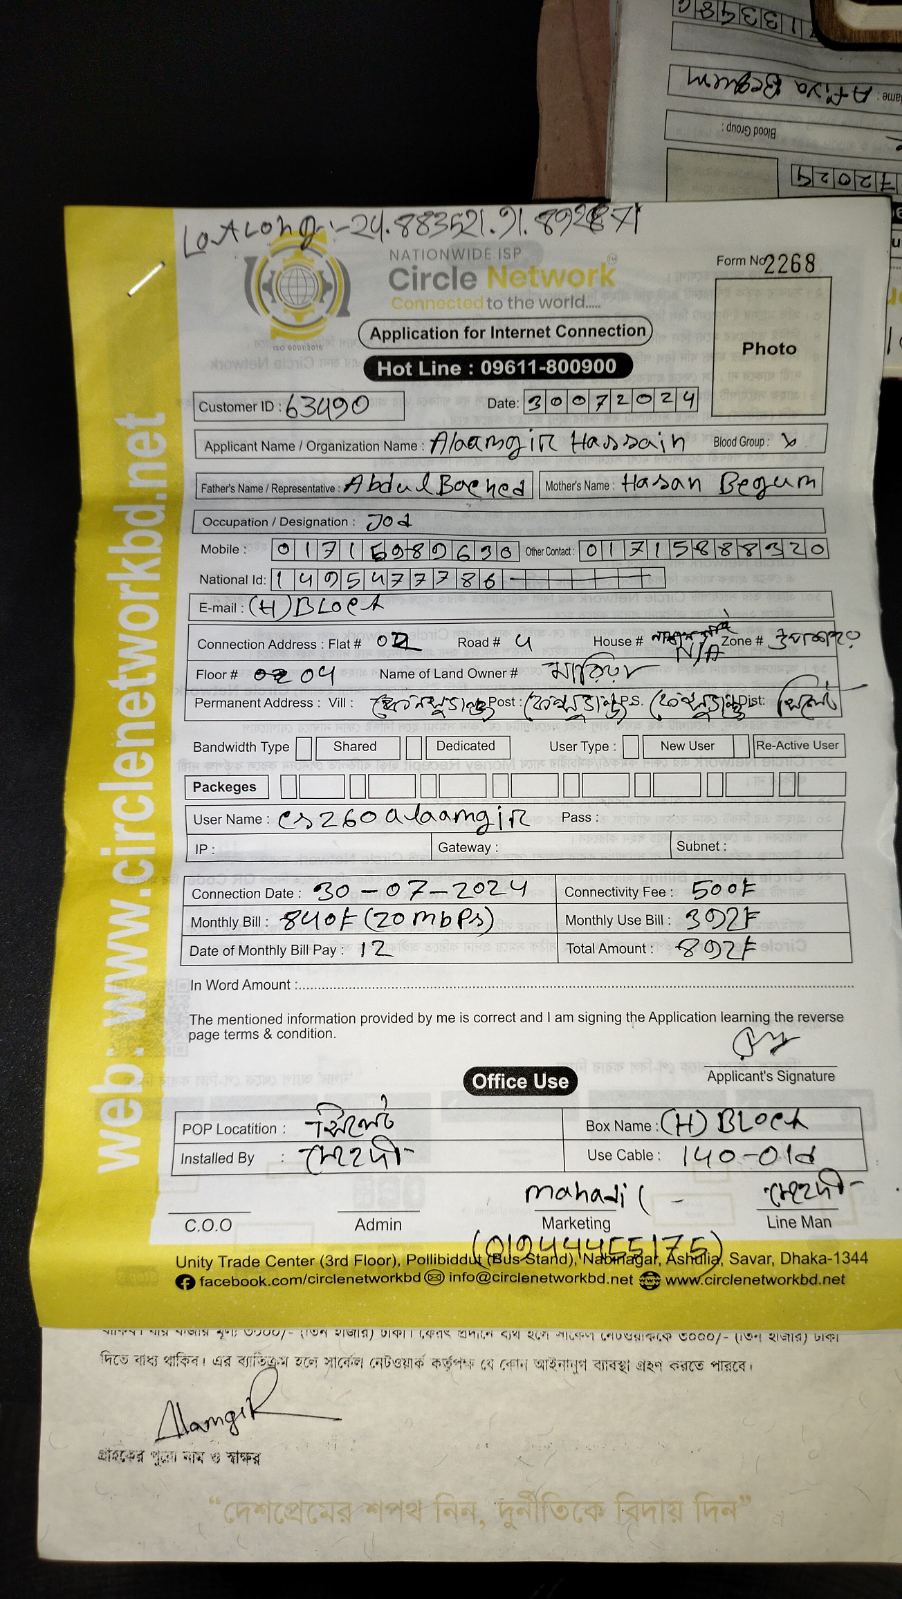 LatLong:-24.883521.91.892871
NATIONWIDE ISP
Circle Network
Connected to the world.....
ISO 9001:2015
Form No 2268
Application for Internet Connection
Hot Line : 09611-800900
Photo
Customer ID : 63490
Date: 30072024
Applicant Name / Organization Name : Alaamgir Hassain Blood Group :
Father's Name / Representative : Abdul Mother's Name : Hasan Begum
Occupation / Designation : Job
Mobile : 01715989630 Other Contact : 01715888320
National Id: 1495477786
E-mail : (H) Block
Connection Address : Flat # 02 Road # 4 House # N/A Zone #
Floor # 04 Name of Land Owner #
Permanent Address : Vill : Post : P.S. Dist: সিলেট
Bandwidth Type Shared Dedicated User Type : New User Re-Active User
Packeges
User Name : cs260alaamgir Pass :
IP : Gateway : Subnet :
Connection Date : 30-07-2024 Connectivity Fee : 500৳
Monthly Bill : 840৳ (20mbps) Monthly Use Bill : 392৳
Date of Monthly Bill Pay : 12 Total Amount : 892৳
In Word Amount :
The mentioned information provided by me is correct and I am signing the Application learning the reverse
page terms & condition.
Applicant's Signature
Office Use
POP Locatition : সিলেট Box Name : (H) Block
Installed By : মেহেদী Use Cable : 140-01d
mahadi মেহেদী
C.O.O Admin Marketing Line Man
(01244455175)
Unity Trade Center (3rd Floor), Pollibiddut (Bus Stand), Nabinagar, Ashulia, Savar, Dhaka-1344
facebook.com/circlenetworkbd info@circlenetworkbd.net www.circlenetworkbd.net
web : www.circlenetworkbd.net
থাকিব। যার বাজার মূল্য ৩০০০/- (তিন হাজার) টাকা। ফেরৎ প্রদানে ব্যর্থ হলে সার্কেল নেটওয়ার্ককে ৩০০০/- (তিন হাজার) টাকা
দিতে বাধ্য থাকিব। এর ব্যতিক্রম হলে সার্কেল নেটওয়ার্ক কর্তৃপক্ষ যে কোন আইনানুগ ব্যবস্থা গ্রহণ করতে পারবে।
AlamgiR
গ্রাহকের পুরো নাম ও স্বাক্ষর
“দেশপ্রেমের শপথ নিন, দুর্নীতিকে বিদায় দিন”
Afiya Begum
Blood Group :